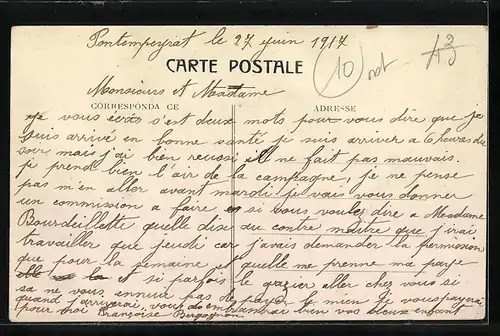 Pontempeyrat le 27 juin 1917
CARTE POSTALE
10
Monsieurs et Madame
CORRESPONDA CE
ADRESSE
je vous écris s'est deux mots pour vous dire que je
suis arrivé en bonne santé je suis arriver a 6 heures du
soir mais j'ai bien reussi Il ne fait pas mauvais.
je prend bien l'air de la campagne, je ne pense
pas m'en aller avant mardi je vais vous donner
un commission a faire si vous voulez dire a Madame
Bourdeillette quelle dise au contre maitre que j'irai
travailler que jeudi car j'avais demander la permission
que pour la semaine et quelle me prenne ma paye
et si parfois le gazier aller chez vous si
sa ne vous ennuie pas de payer le mien je vous payerai
quand j'arriverai, vous embrasserai bien vos deux enfant
pour moi Françoise